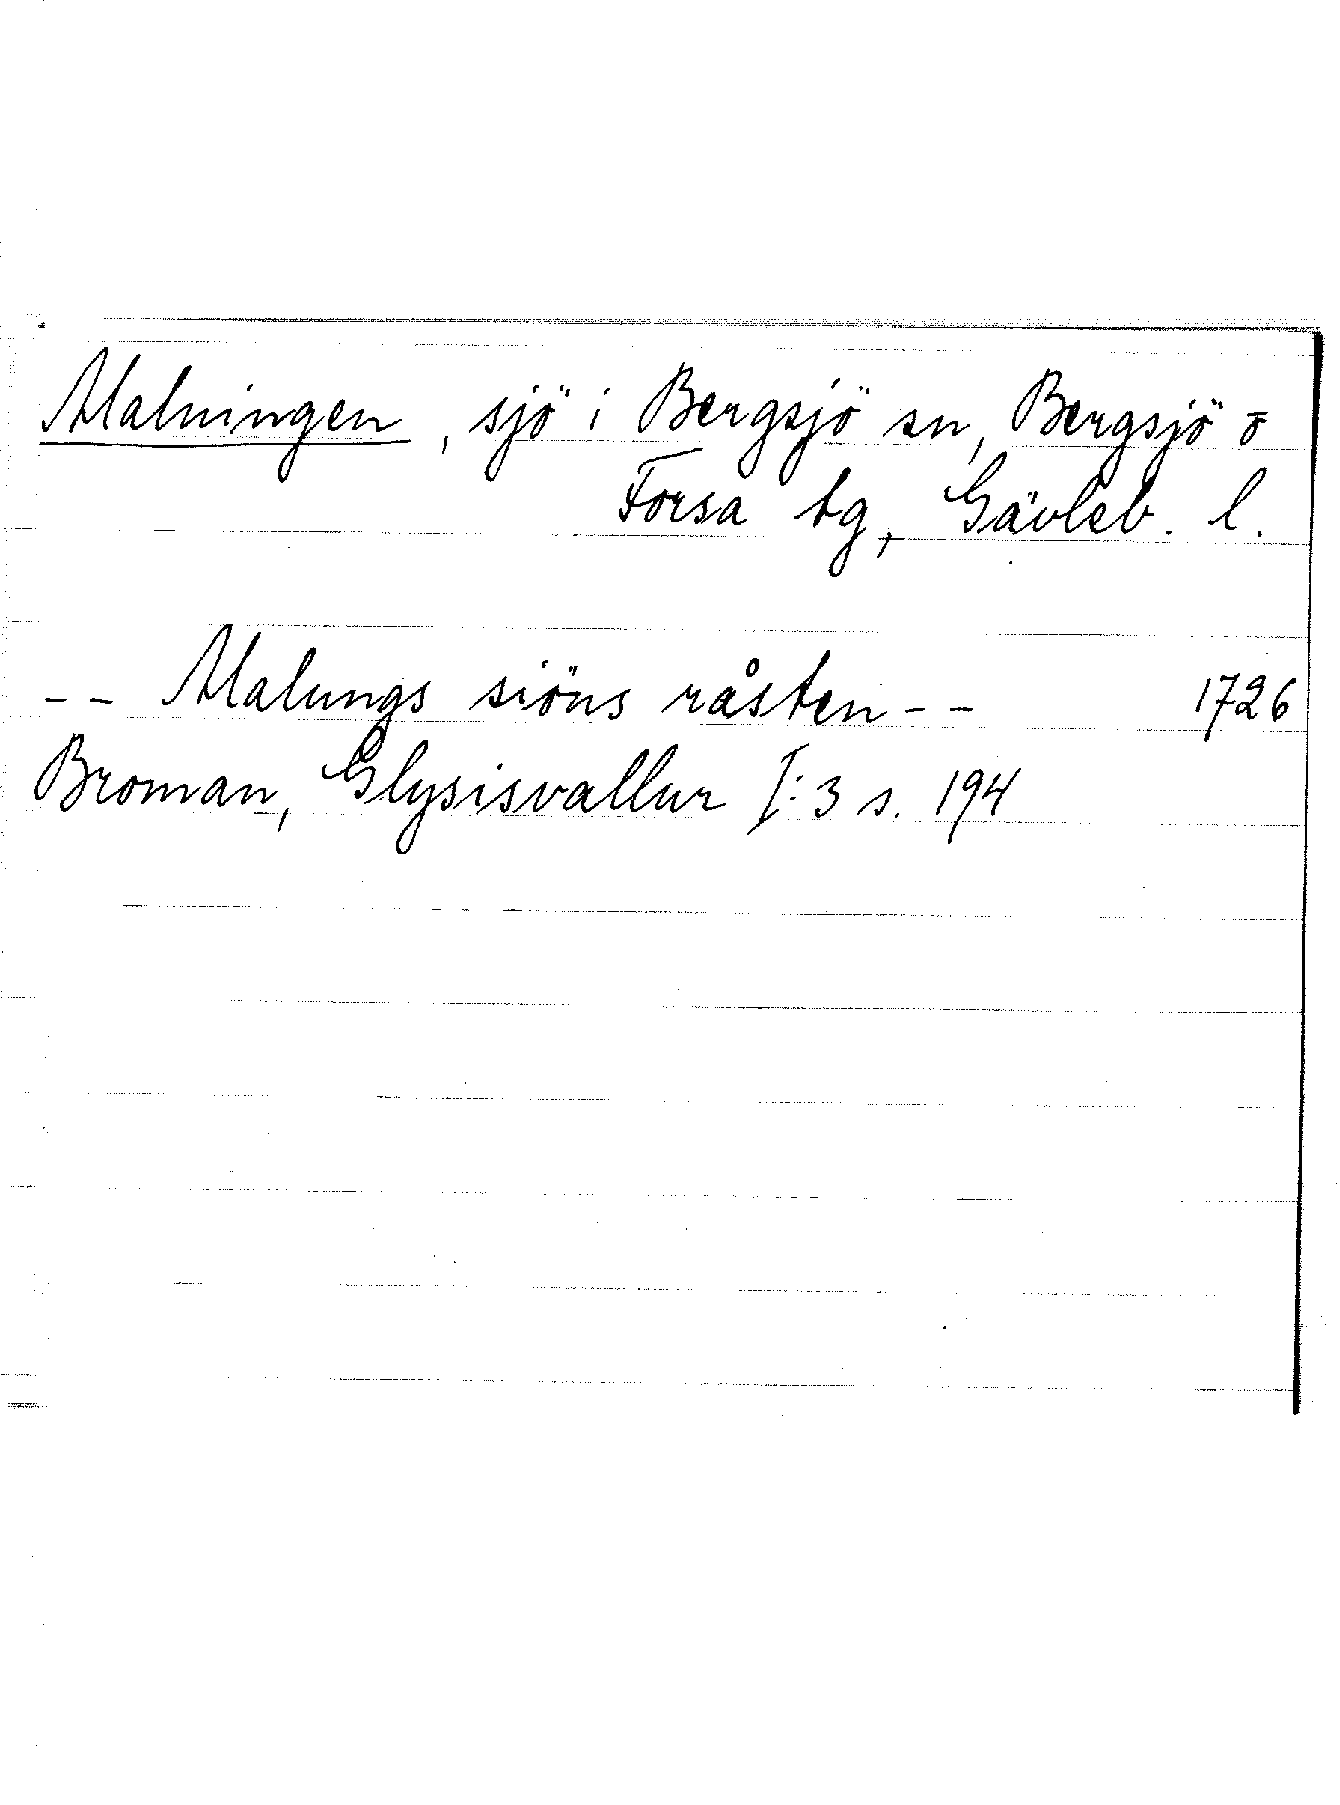 Malningen, sjö i Bergsjö sn, Bergsjö o
Forsa tg, Gävleb. l.
-- Malungs siöns råsten -- 1726
Broman, Glysisvallur I:3 s. 194